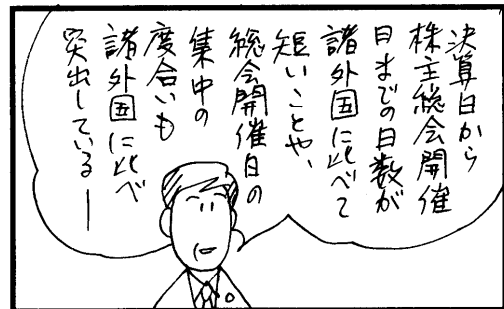 決算日から
株主総会開催
日までの日数が
諸外国に比べて
短いことや、
総会開催日の
集中の
度合いも
諸外国に比べ
突出している―